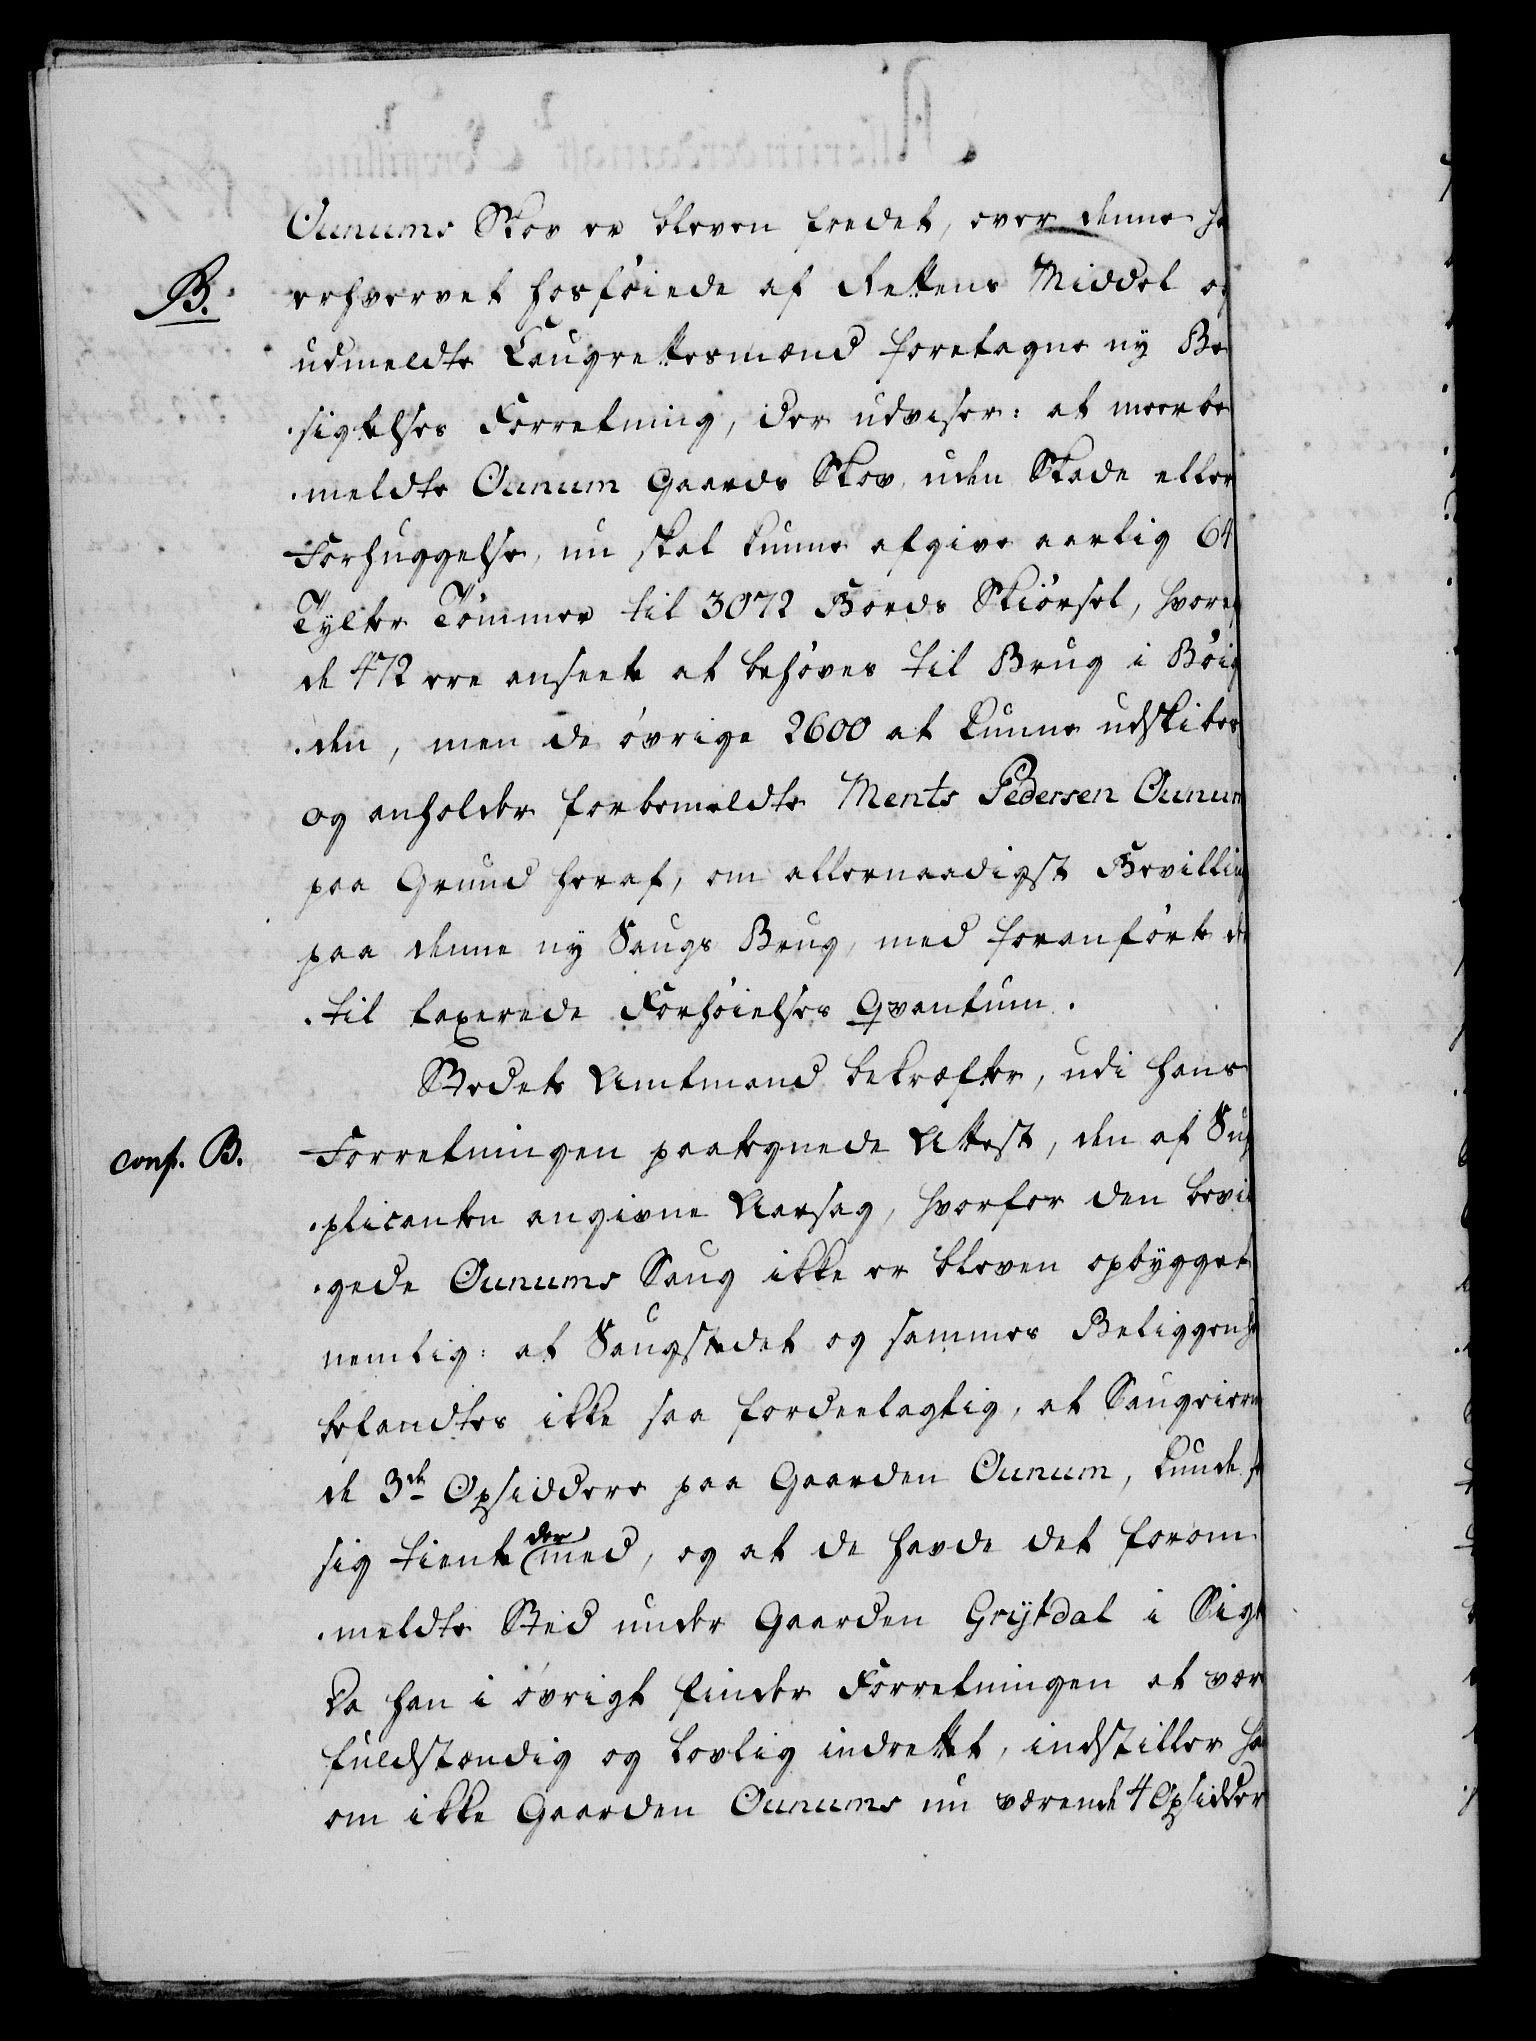 Ounums Skov er bleven fredet, over denne
B.
erhvervet hosføiede af Rettens Middel
udmeldte Laugrettesmænd foretagne ny Be
sigtelses Forretning, der udviser: at meerbe
meldte Ounum Gaards Skov, uden Skade eller
Forhuggelse, nu skal kunne afgive aarlig 64
Tylter Tømmer til 3072 Bords Skiørsel, hvoraf
de 472 ere anseete at behøves til Brug i Böig
den, men de øvrige 2600 at kunne udskibes
og anholder forbemeldte Ments Pedersen Ounum
paa Grund heraf, om allernaadigst Bevilling
paa denne ny Saugs Brug, med foranførte der
til taxerede Forhøielses Qvantum.
Stedets Amtmand bekræfter, udi hans
conf. B.
Forretningen paategnede Attest, den af Sup
plicanten angivne Aarsag, hvorfor den bevil
gede Ounums Saug ikke er bleven opbygget
nemlig: at Saugstedet og sammes Beliggenhe
befandtes ikke saa fordeelagtig, at Saugeierne
de 3de Opsiddere paa Gaarden Ounum, kunde
sig tient der med, og at de havde det forom
meldte Sted under Gaarden Grÿtdal i Sigte
Da han i øvrigt finder Forretningen at være
fuldstændig og lovlig indrettet, indstiller han
om ikke Gaarden Ounums nu værende 4 Opsidder